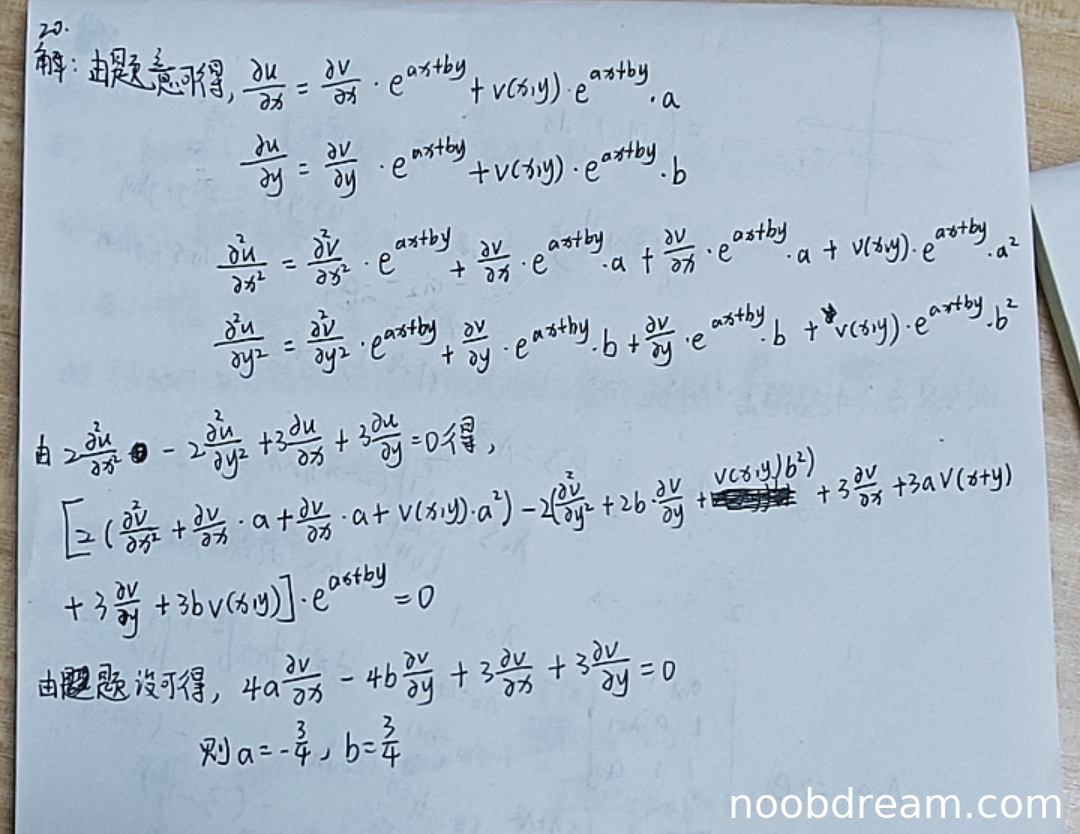 20.
解: 由题意可得, ∂u/∂x = ∂v/∂x · e^{ax+by} + v(x,y) · e^{ax+by} · a
∂u/∂y = ∂v/∂y · e^{ax+by} + v(x,y) · e^{ax+by} · b
∂²u/∂x² = ∂²v/∂x² · e^{ax+by} + ∂v/∂x · e^{ax+by} · a + ∂v/∂x · e^{ax+by} · a + v(x,y) · e^{ax+by} · a²
∂²u/∂y² = ∂²v/∂y² · e^{ax+by} + ∂v/∂y · e^{ax+by} · b + ∂v/∂y · e^{ax+by} · b + v(x,y) · e^{ax+by} · b²
由 2∂²u/∂x² - 2∂²u/∂y² + 3∂u/∂x + 3∂u/∂y = 0 得,
[2(∂²v/∂x² + ∂v/∂x · a + ∂v/∂x · a + v(x,y) · a²) - 2(∂²v/∂y² + 2b · ∂v/∂y + v(x,y)b²) + 3∂v/∂x + 3av(x+y)
+ 3∂v/∂y + 3bv(x,y)] · e^{ax+by} = 0
由题设可得, 4a∂v/∂x - 4b∂v/∂y + 3∂v/∂x + 3∂v/∂y = 0
则 a = -3/4, b = 3/4
noobdream.com